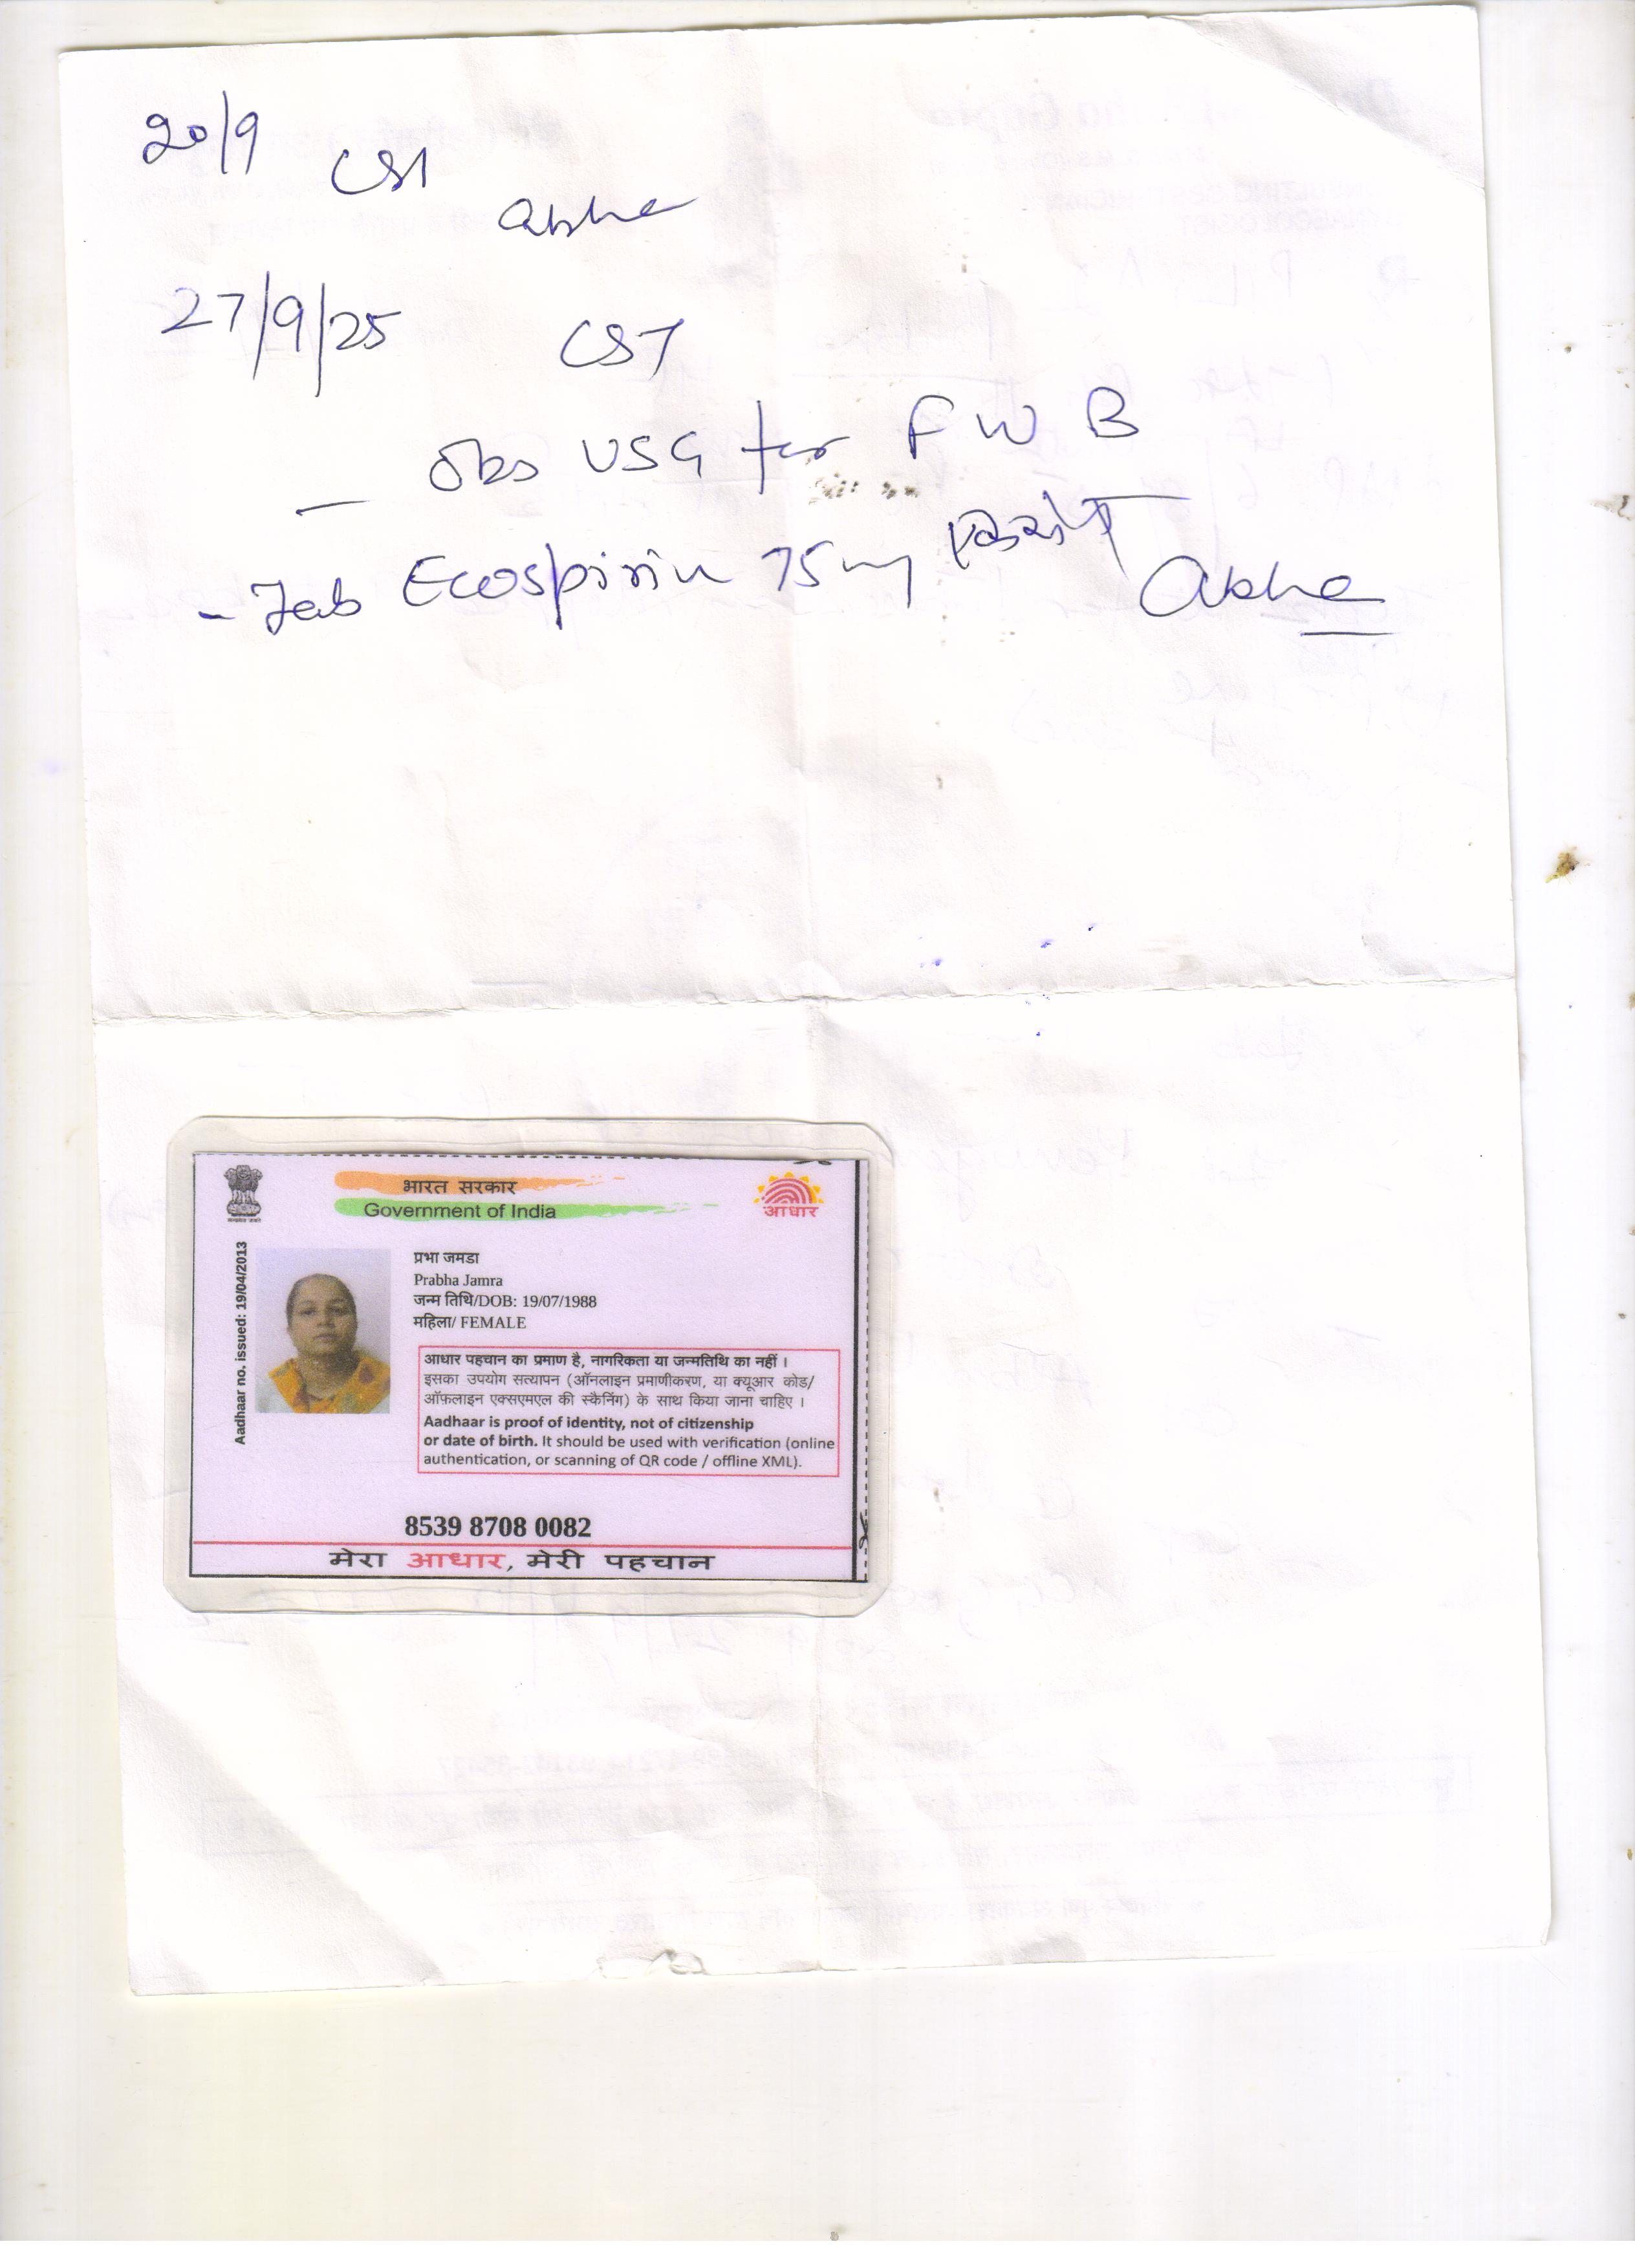 20/9
CST
Abha
27/9/25 CST
- Obs USG for F W B
- Tab Ecospirin 75mg
Abha
भारत सरकार
Government of India
आधार
Aadhaar no. issued: 19/04/2013
प्रभा जमडा
Prabha Jamra
जन्म तिथि/DOB: 19/07/1988
महिला/ FEMALE
आधार पहचान का प्रमाण है, नागरिकता या जन्मतिथि का नहीं ।
इसका उपयोग सत्यापन (ऑनलाइन प्रमाणीकरण, या क्यूआर कोड/
ऑफ़लाइन एक्सएमएल की स्कैनिंग) के साथ किया जाना चाहिए ।
Aadhaar is proof of identity, not of citizenship
or date of birth. It should be used with verification (online
authentication, or scanning of QR code / offline XML).
8539 8708 0082
मेरा आधार, मेरी पहचान